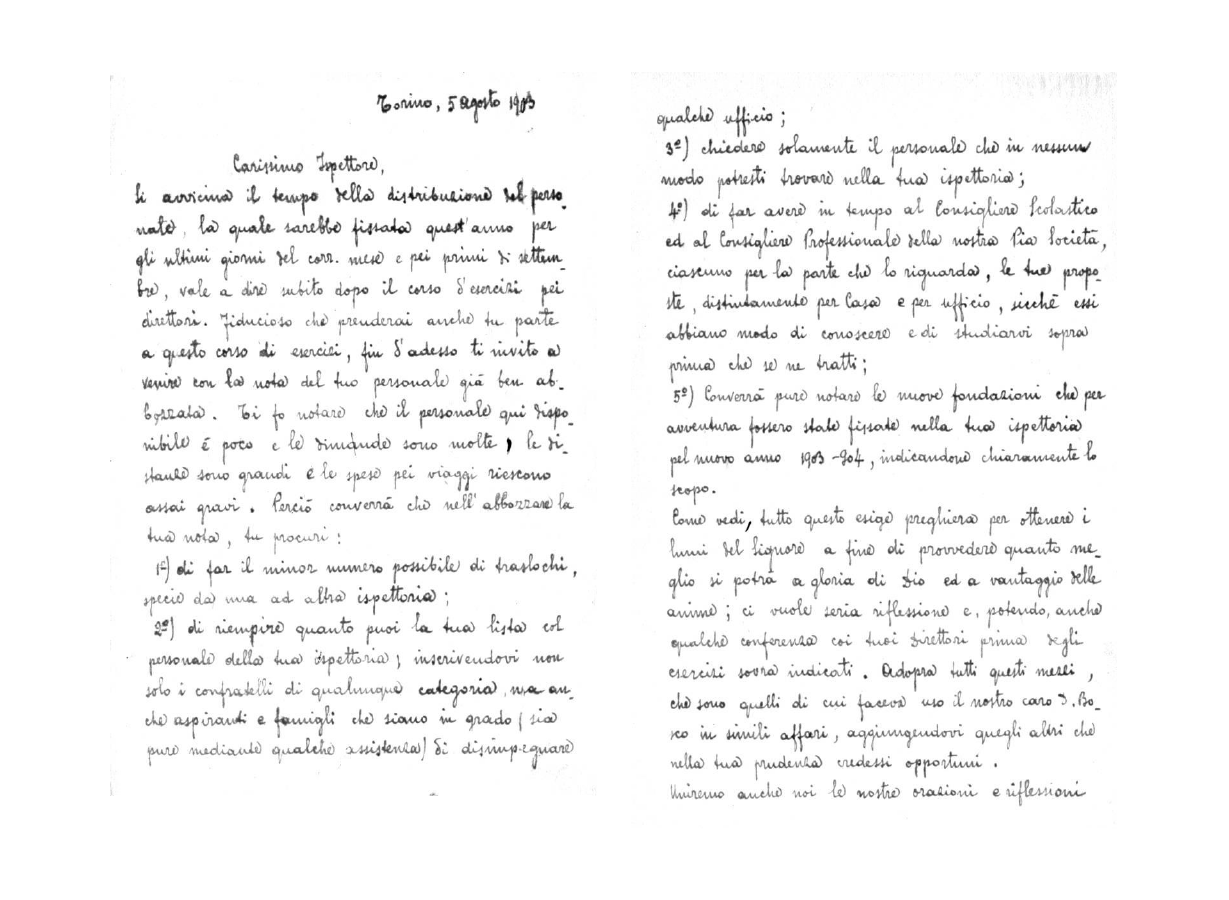 Torino, 5 Agosto 1903
Carissimo Ispettore,
Si avvicina il tempo della distribuzione del perso_
nale, la quale sarebbe fissata quest'anno per
gli ultimi giorni del corr. mese e pei primi di settem_
bre, vale a dire subito dopo il corso d'esercizi pei
direttori. Fiducioso che prenderai anche tu parte
a questo corso di esercizi, fin d'adesso ti invito a
venire con la nota del tuo personale già ben ab_
bozzata. Ti fo notare che il personale qui dispo_
nibile è poco e le dimande sono molte, le di_
stanze sono grandi e le spese pei viaggi riescono
assai gravi. Perciò converrà che nell'abbozzare la
tua nota, tu procuri:
1º) di far il minor numero possibile di traslochi,
specie da una ad altra ispettoria;
2º) di riempire quanto puoi la tua lista col
personale della tua ispettoria; inscrivendovi non
solo i confratelli di qualunque categoria, ma an_
che aspiranti e famigli che siano in grado (sia
pure mediante qualche assistenza) di disimpegnare
qualche ufficio;
3º) chiedere solamente il personale che in nessun
modo potresti trovare nella tua ispettoria;
4º) di far avere in tempo al Consigliere Scolastico
ed al Consigliere Professionale della nostra Pia Società,
ciascuno per la parte che lo riguarda, le tue propo_
ste, distintamente per Casa e per ufficio, sicchè essi
abbiano modo di conoscere e di studiarvi sopra
prima che se ne tratti;
5º) Converrà pure notare le nuove fondazioni che per
avventura fossero state fissate nella tua ispettoria
pel nuovo anno 1903-904, indicandone chiaramente lo
scopo.
Come vedi, tutto questo esige preghiera per ottenere i
lumi del Signore a fine di provvedere quanto me_
glio si potrà a gloria di Dio ed a vantaggio delle
anime; ci vuole seria riflessione e, potendo, anche
qualche conferenza coi tuoi Direttori prima degli
esercizi sovra indicati. Adopra tutti questi mezzi,
che sono quelli di cui faceva uso il nostro caro D. Bo_
sco in simili affari, aggiungendovi quegli altri che
nella tua prudenza credessi opportuni.
Uniremo anche noi le nostre orazioni e riflessioni